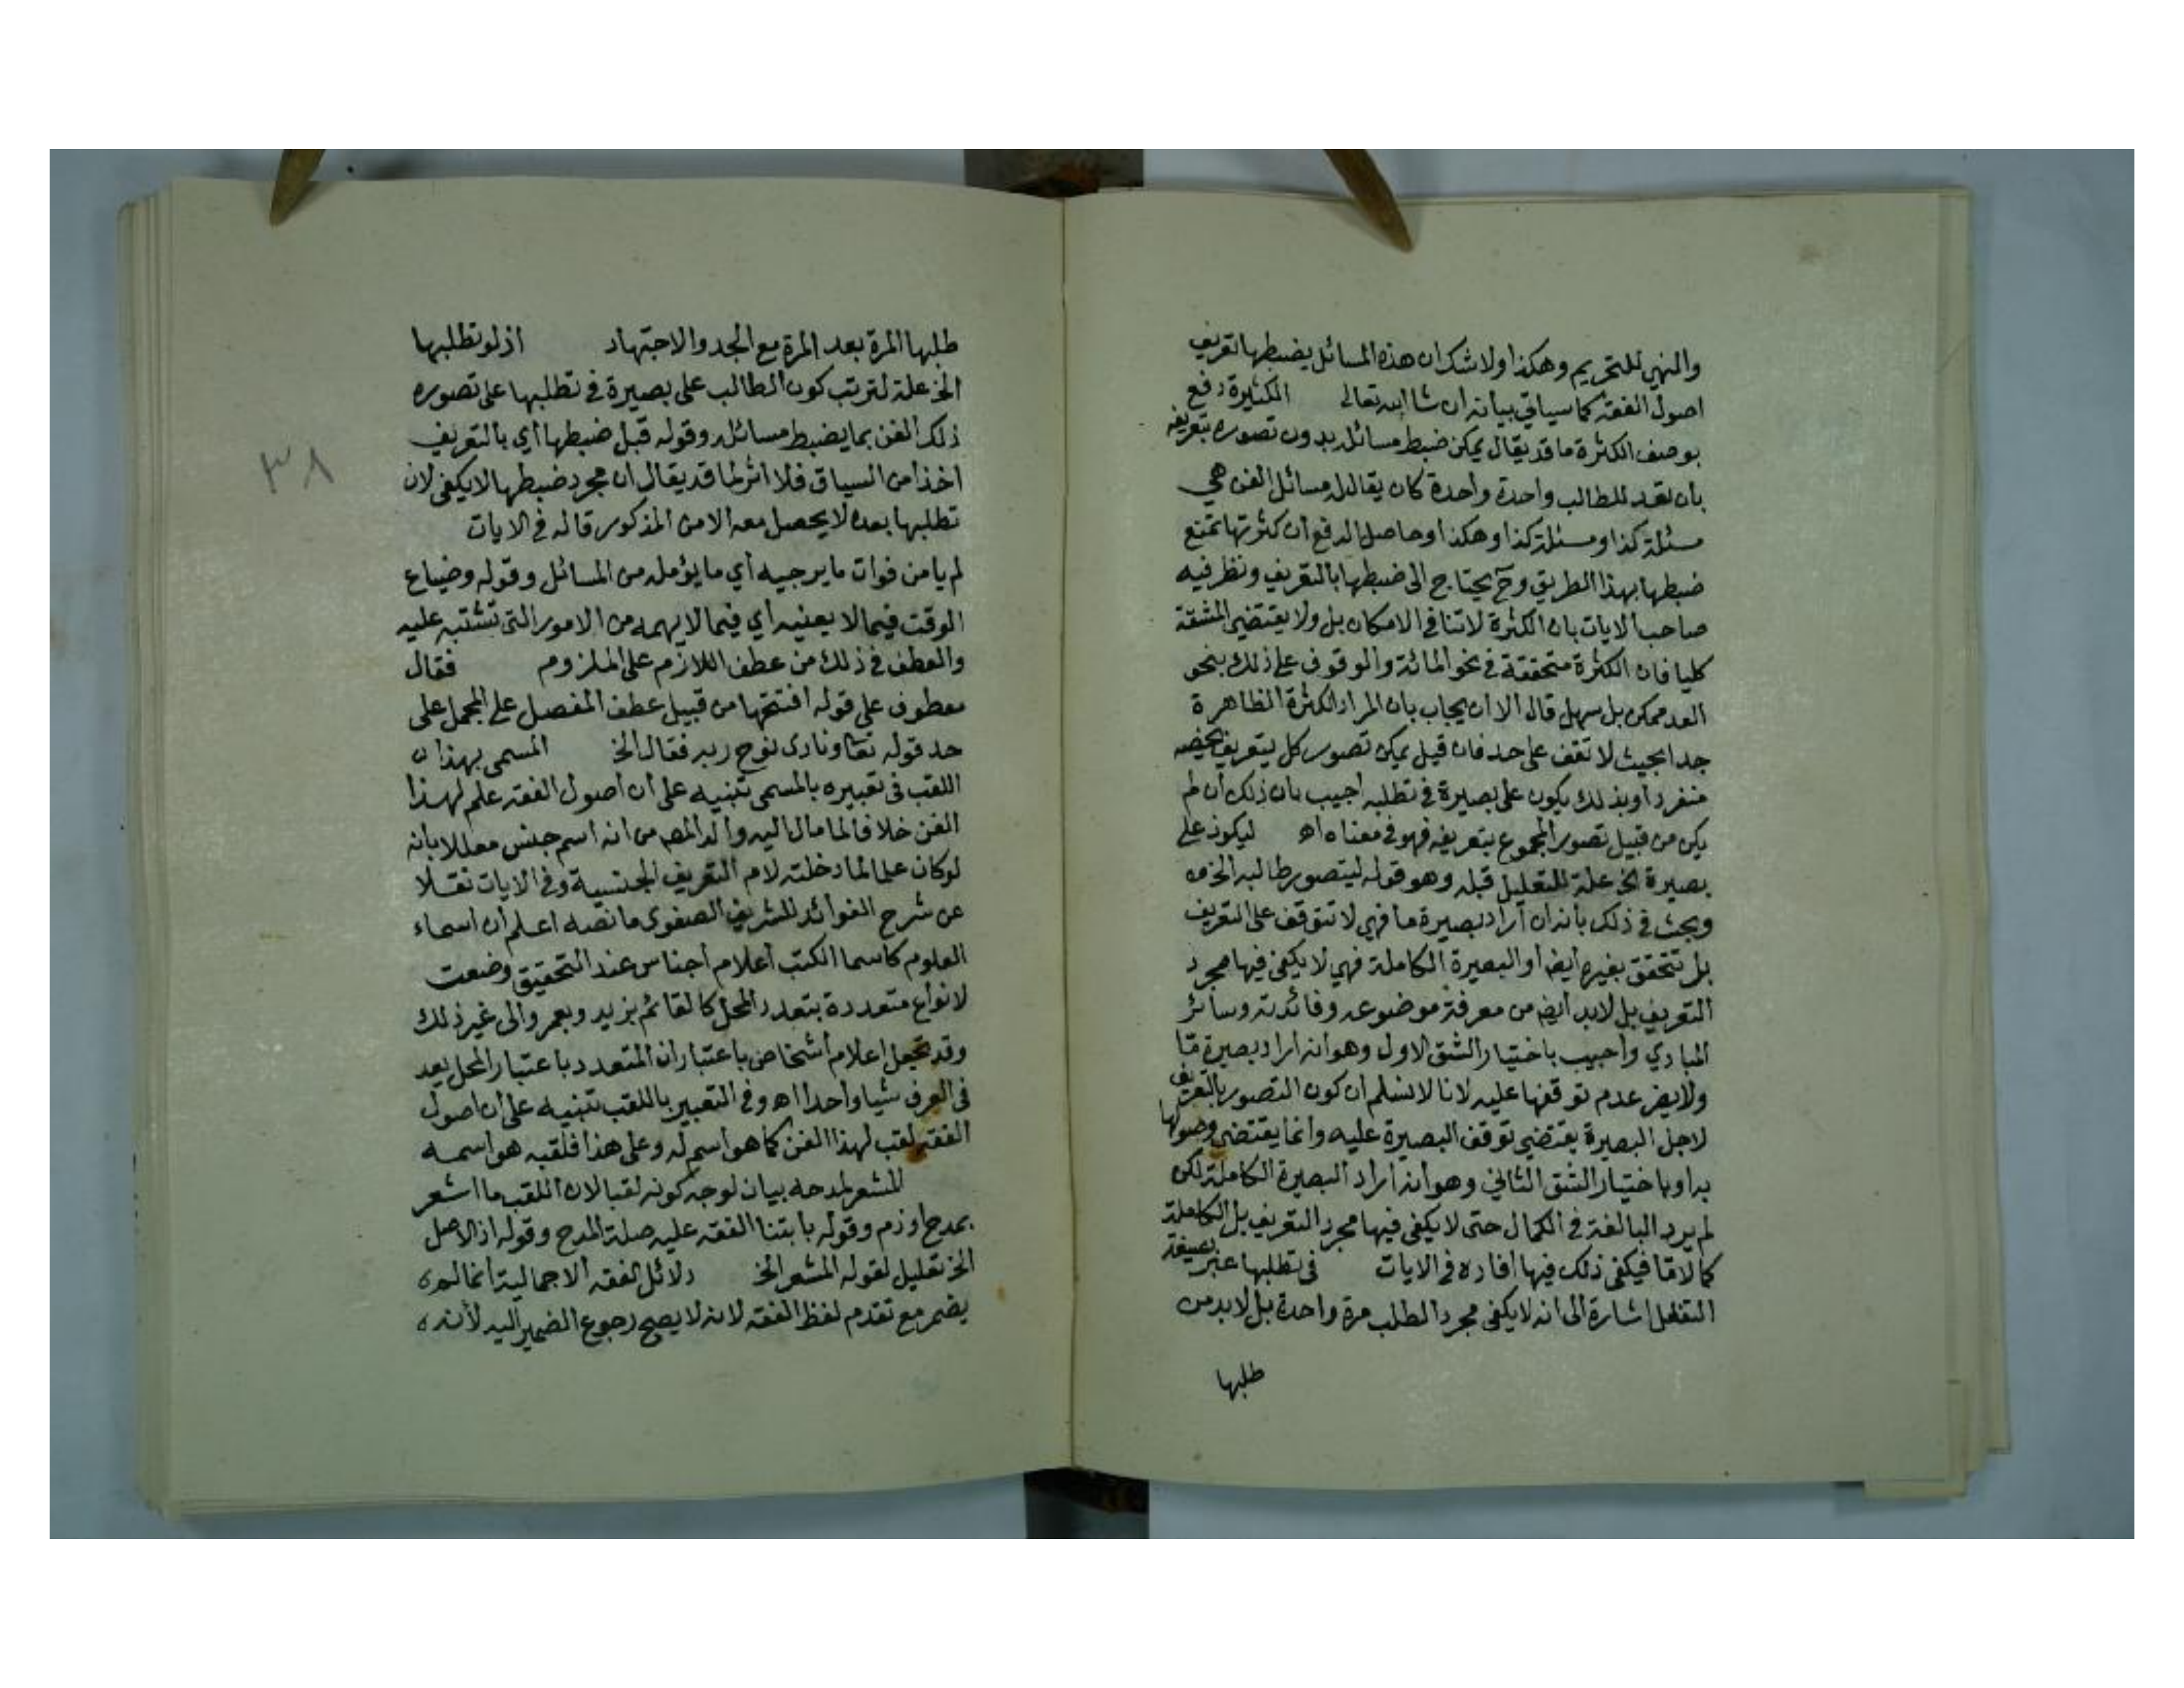 والنهي للتحريم وهكذا ولا شك ان هذه المسائل يضبطها تعريف
اصول الفقه كما سياتي بيانه ان شا الله تعالى الكثيرة دفع
بوصف الكثرة ما قد يقال يمكن ضبط مسائله بدون تصوره بتعريفه
بان تعد للطالب واحدة واحدة كان يقال له مسائل الفن هي
مسئلة كذا ومسئلة كذا وهكذا وحاصل الدفع ان كثرتها تمنع
ضبطها بهذا الطريق وح يحتاج الى ضبطها بالتعريف ونظر فيه
صاحب الايات بان الكثرة لا تنافي الامكان بل ولا يقتضي المشقة
كليا فان الكثرة متحققة في نحو المائة والوقوف على ذلك بنحو
العد ممكن بل سهل قال الا ان يجاب بان المراد الكثرة الظاهرة
جدا بحيث لا تقف على حد فان قيل يمكن تصور كل بتعريف يخصه
منفردا وبذلك يكون على بصيرة في تطلبه اجيب بان ذلك ان لم
يكن من قبيل تصور المجموع بتعريفه فهو في معناه اه ليكون على
بصيرة الخ علة للتعليل قبله وهو قوله ليتصور طالبه الخ
وبحث في ذلك بانه ان اراد بصيرة ما فهي لا تتوقف على التعريف
بل تتحقق بغيره ايضا او البصيرة الكاملة فهي لا يكفي فيها مجرد
التعريف بل لابد ايضا من معرفة موضوعه وفائدته وسائر
المبادي واجيب باختيار الشق الاول وهو انه اراد بصيرة ما
ولا يضر عدم توقفها عليه لانا لا نسلم ان كون التصور بالتعريف
لاجل البصيرة يقتضي توقف البصيرة عليه وانما يقتضي وصولها
به او باختيار الشق الثاني وهو انه اراد البصيرة الكاملة لكن
لم يرد البالغة في الكمال حتى لا يكفي فيها مجرد التعريف بل الكاملة
كمالا ما فيكفي ذلك فيها افاده في الايات في تطلبها عبر بصيغة
التفعل اشارة الى انه لا يكفي مجرد الطلب مرة واحدة بل لابد من
طلبها
طلبها المرة بعد المرة مع الجد والاجتهاد اذ لو تطلبها
الخ علة لترتب كون الطالب على بصيرة في تطلبها على تصوره
ذلك الفن بما يضبط مسائله وقوله قبل ضبطها اي بالتعريف
اخذا من السياق فلا اثر لما قد يقال ان مجرد ضبطها لا يكفي لان
تطلبها بعده لا يحصل معه الامن المذكور قاله في الايات
لم يامن فوات ما يرجيه اي ما يؤمله من المسائل وقوله وضياع
الوقت فيما لا يعنيه اي فيما لا يهمه من الامور التي تشتبه عليه
والعطف في ذلك من عطف اللازم على الملزوم فقال
معطوف على قوله افتتحها من قبيل عطف المفصل على المجمل على
حد قوله تعا ونادى نوح ربه فقال الخ المسمى بهذا
اللقب في تعبيره بالمسمى تنبيه على ان اصول الفقه علم لهذا
الفن خلافا لما مال اليه والد المص من انه اسم جنس معللا بانه
لو كان علما لما دخلته لام التعريف الجنسية وفي الايات نقلا
عن شرح الفوائد للشريف الصفوي ما نصه اعلم ان اسماء
العلوم كاسما الكتب اعلام اجناس عند التحقيق وضعت
لانواع متعددة بتعدد المحل كالقائم بزيد وبعمرو الى غير ذلك
وقد تجعل اعلام اشخاص باعتبار ان المتعدد باعتبار المحل يعد
في العرف شيا واحدا اه وفي التعبير باللقب تنبيه على ان اصول
الفقه لقب لهذا الفن كما هو اسم له وعلى هذا فلقبه هو اسمه
المشعر بمدحه بيان لوجه كونه لقبا لان اللقب ما اشعر
بمدح او ذم وقوله بابتنا الفقه عليه صلة المدح وقوله اذ الاصل
الخ تعليل لقوله المشعر الخ دلائل الفقه الاجمالية انما لم
يضمر مع تقدم لفظ الفقه لانه لا يصح رجوع الضمير اليه لانه
٣٨